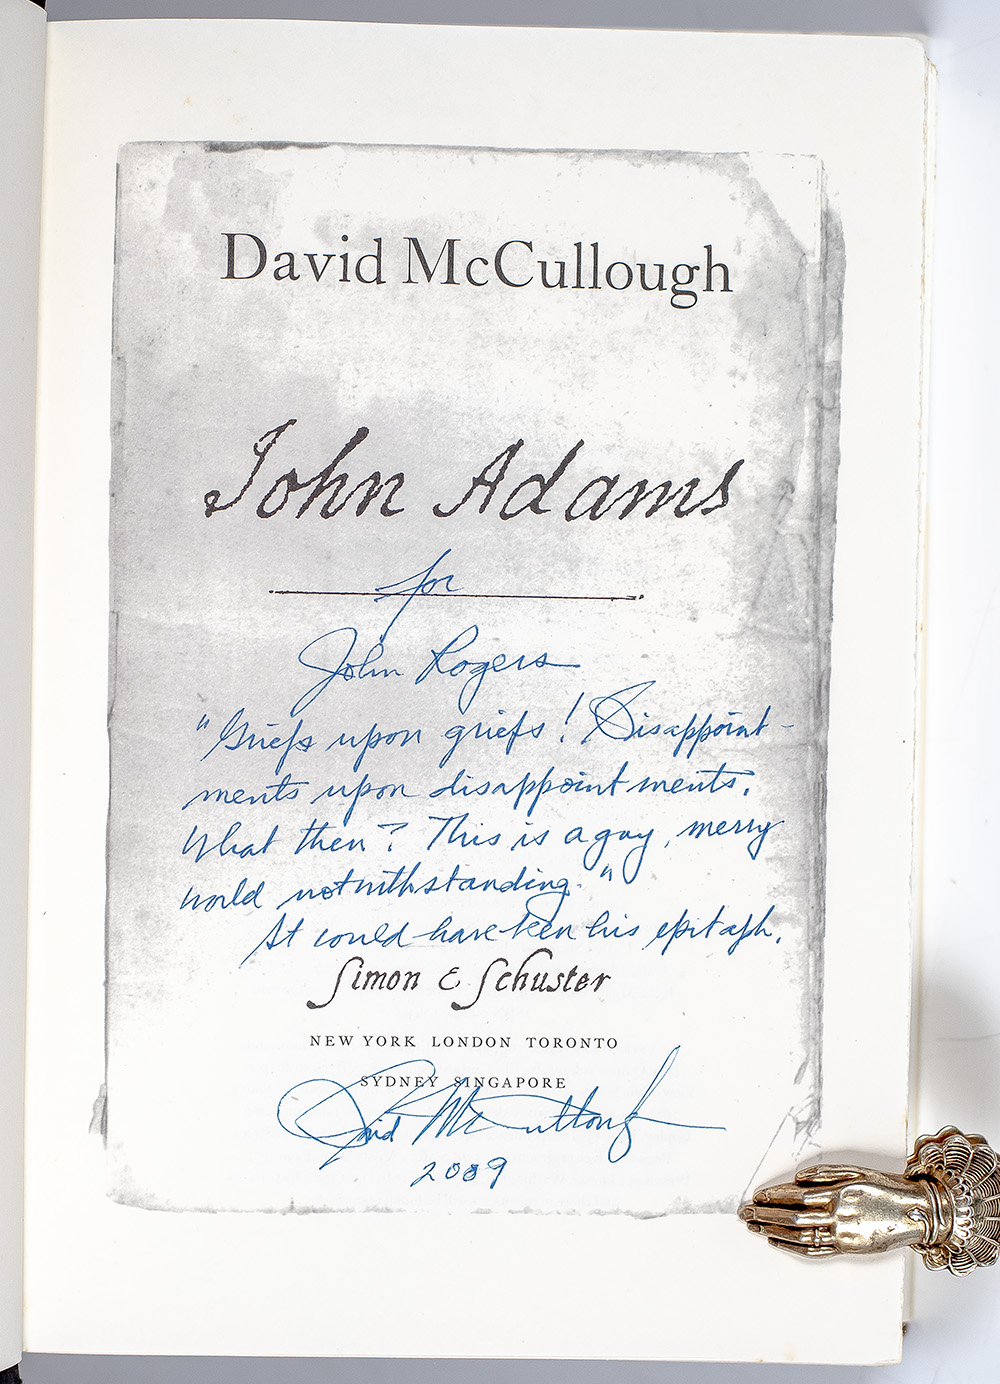 David McCullough
John Adams
for
John Rogers
"Griefs upon griefs! Disappoint-
ments upon disappointments.
What then? This is a gay, merry
world notwithstanding."
It could have been his epitaph.
Simon & Schuster
NEW YORK LONDON TORONTO
SYDNEY SINGAPORE
David McCullough
2009